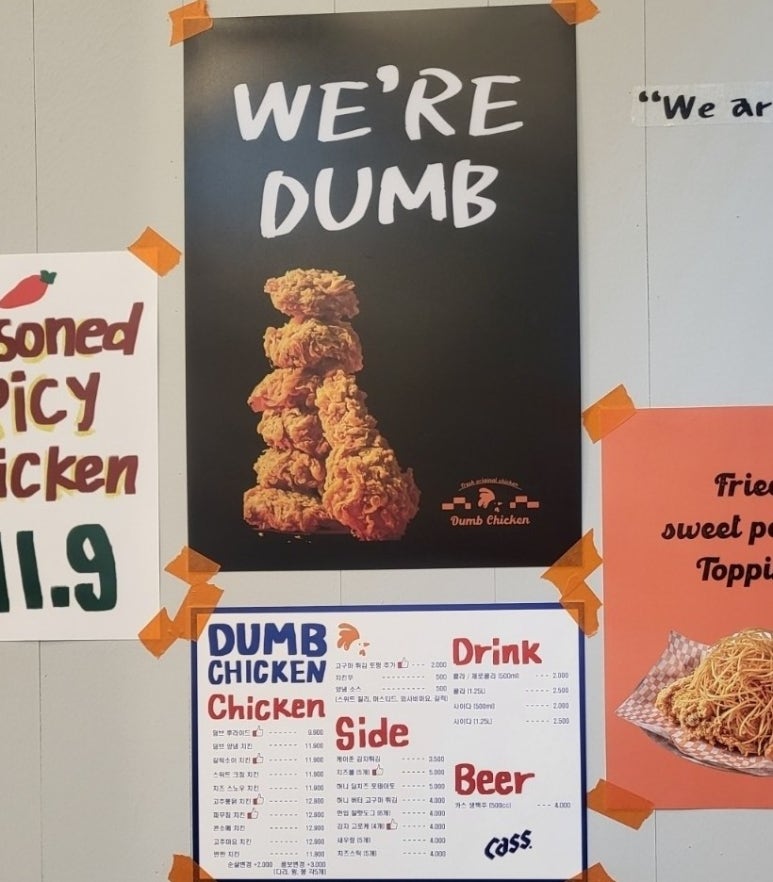 WE'RE
DUMB
"We ar
soned
picy
icken
11.9
Fresh original chicken
Dumb Chicken
Frie
sweet po
Toppi
DUMB
CHICKEN
Chicken
덤브 후라이드 9.900
덤브 양념 치킨 11.900
갈릭소이 치킨 11.900
스위트 크림 치킨 11.900
치즈 스노우 치킨 11.900
고추불닭 치킨 12.900
파무침 치킨 12.900
콘소메 치킨 12.900
고추마요 치킨 12.900
반반 치킨 11.900
순살변경 +2.000 콤보변경 +3.000
(다리, 윙, 봉 각5개)
고구마 튀김 토핑 추가 2.000
치킨무 500
양념 소스 500
(스위트 칠리, 머스타드, 와사비마요, 갈릭)
Side
케이준 감자튀김 3.500
치즈볼 (5개) 5.000
허니 딥치즈 포테이토 5.000
허니 버터 고구마 튀김 4.000
4.000
감자 고로케 (4개) 4.000
새우링 (5개) 4.000
치즈스틱 (5개) 4.000
Drink
콜라 / 제로콜라 (500ml) 2.000
콜라 (1.25L) 2.500
사이다 (500ml) 2.000
사이다 (1.25L) 2.500
Beer
카스 생맥주 (500cc) 4.000
Cass.